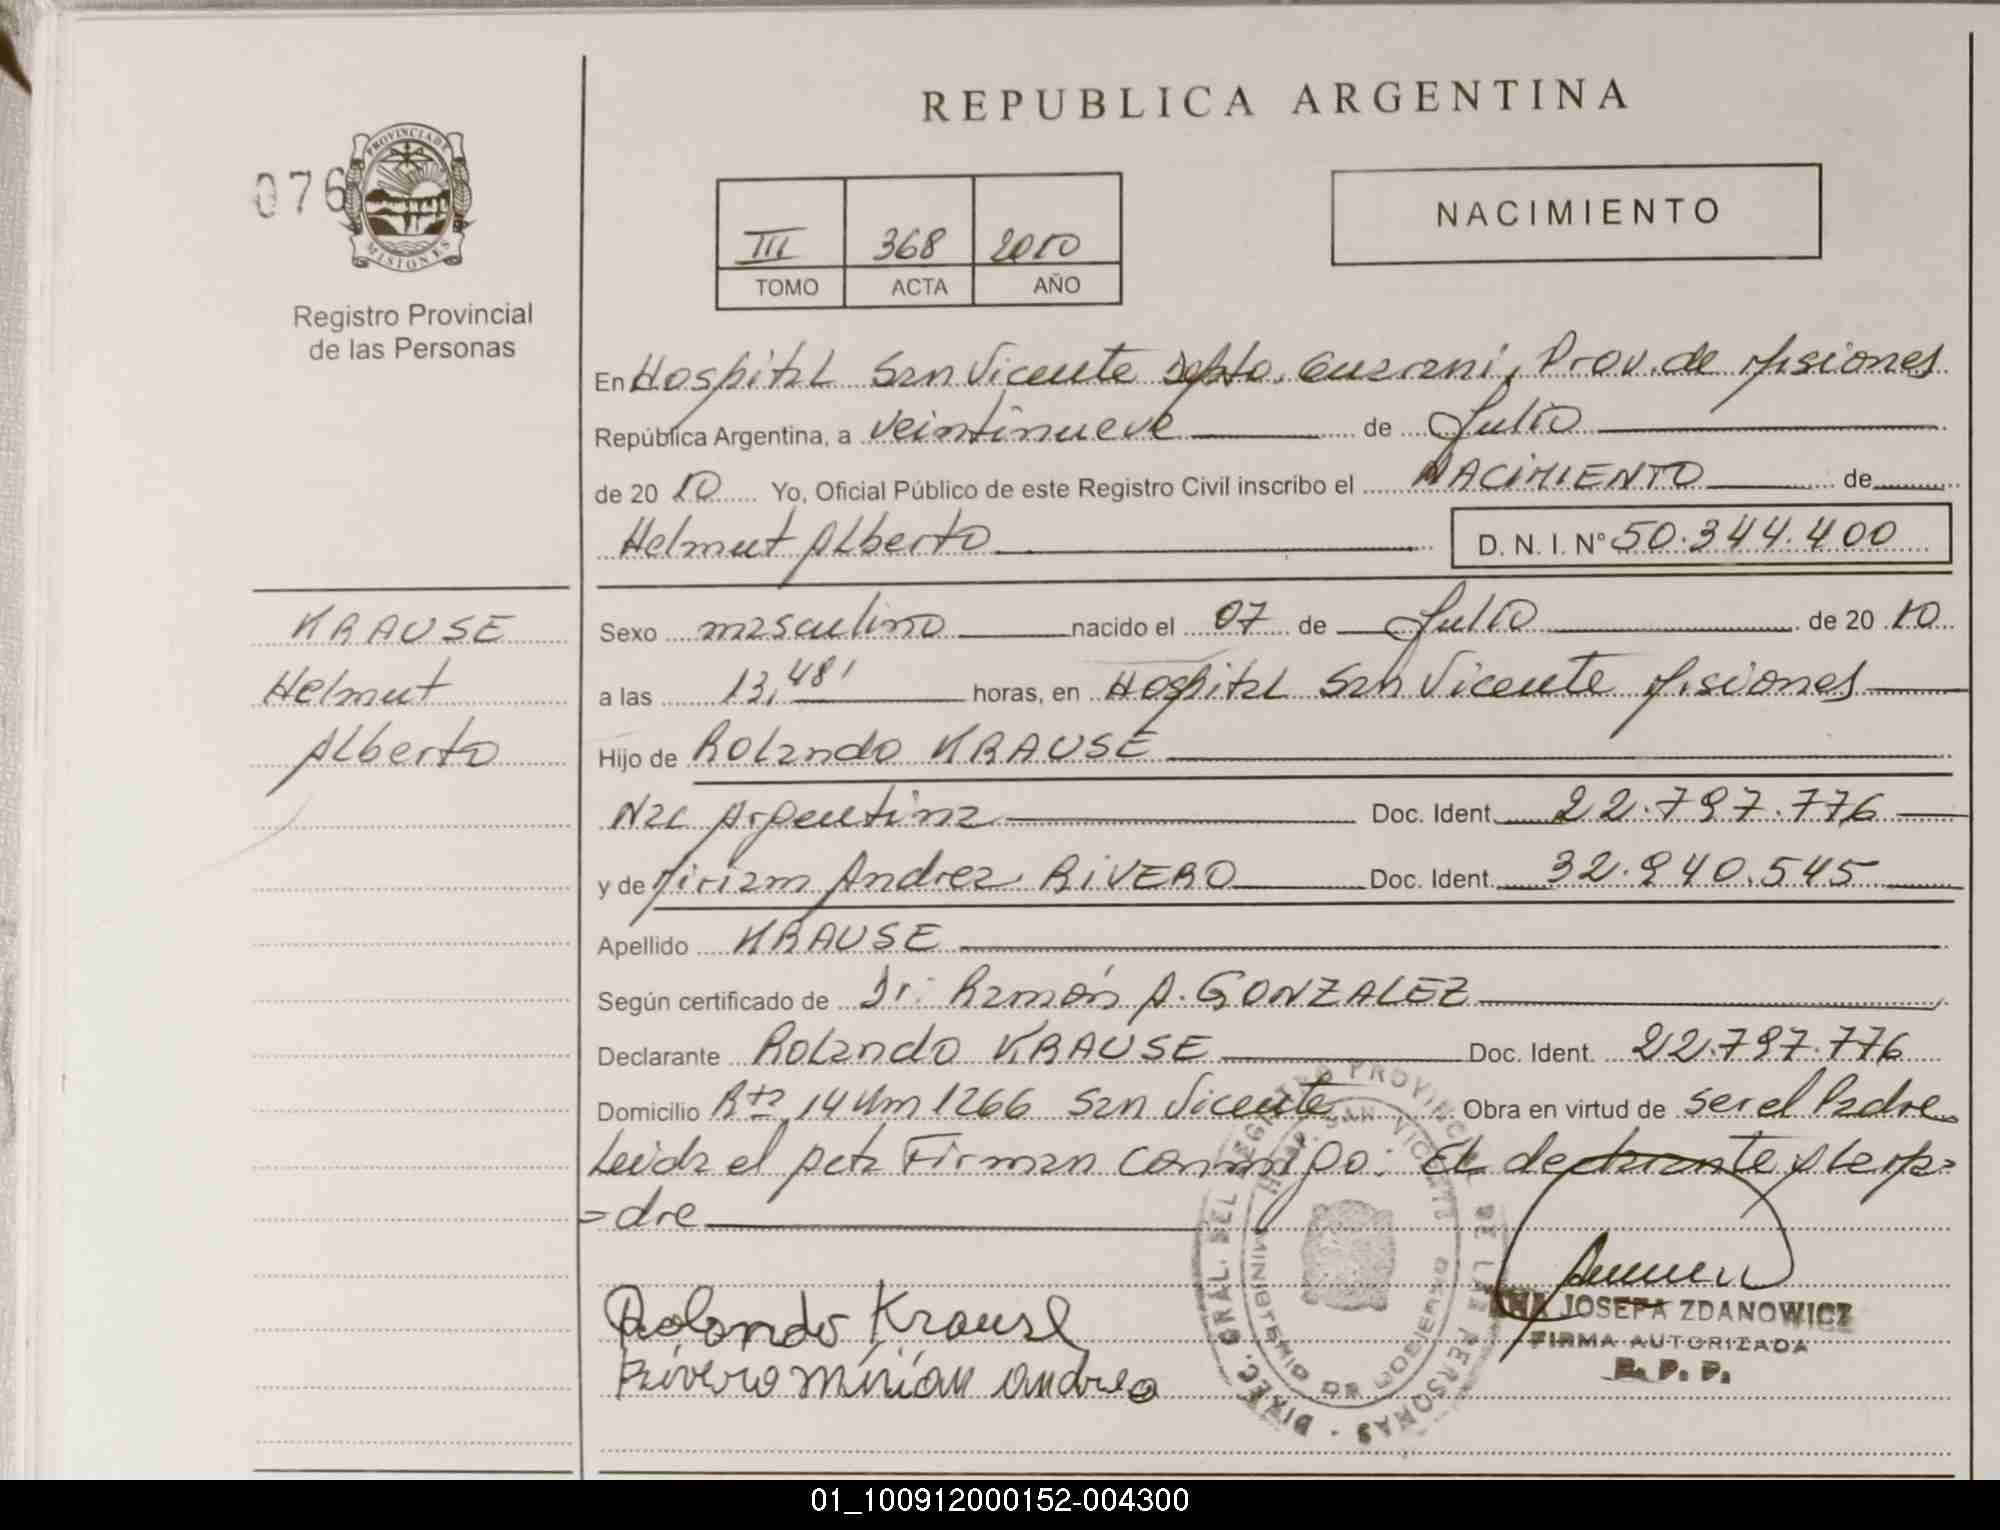 REPUBLICA ARGENTINA
076
PROVINCIA DE
MISIONES
Registro Provincial
de las Personas
III 368 2010
TOMO ACTA AÑO
NACIMIENTO
En Hospital San Vicente Depto. Guarani, Prov. de Misiones
República Argentina, a veintinueve de Julio
de 2010 Yo, Oficial Público de este Registro Civil inscribo el NACIMIENTO de
Helmut Alberto D. N. I. N° 50.344.400
KRAUSE
Helmut
Alberto
Sexo masculino nacido el 07 de Julio de 2010
a las 13,48' horas, en Hospital San Vicente Misiones
Hijo de Rolando KRAUSE
Nac Argentina Doc. Ident. 22.797.776
y de Miriam Andrea RIVERO Doc. Ident. 32.940.545
Apellido KRAUSE
Según certificado de Dr. Ramón A. GONZALEZ
Declarante Rolando KRAUSE Doc. Ident. 22.797.776
Domicilio Rta 14 Km 1266 San Vicente Obra en virtud de ser el Padre
Leida el Acta Firman conmigo: El declarante y la ma=
=dre
Rolando Krause
Rivero Mirian Andrea
DIREC. GRAL. DEL REGISTRO PROVINCIAL DE LAS PERSONAS
HOSP. SAN VICENTE
MINISTERIO DE GOBIERNO
JOSEFA ZDANOWICZ
FIRMA AUTORIZADA
R. P. P.
01_100912000152-004300